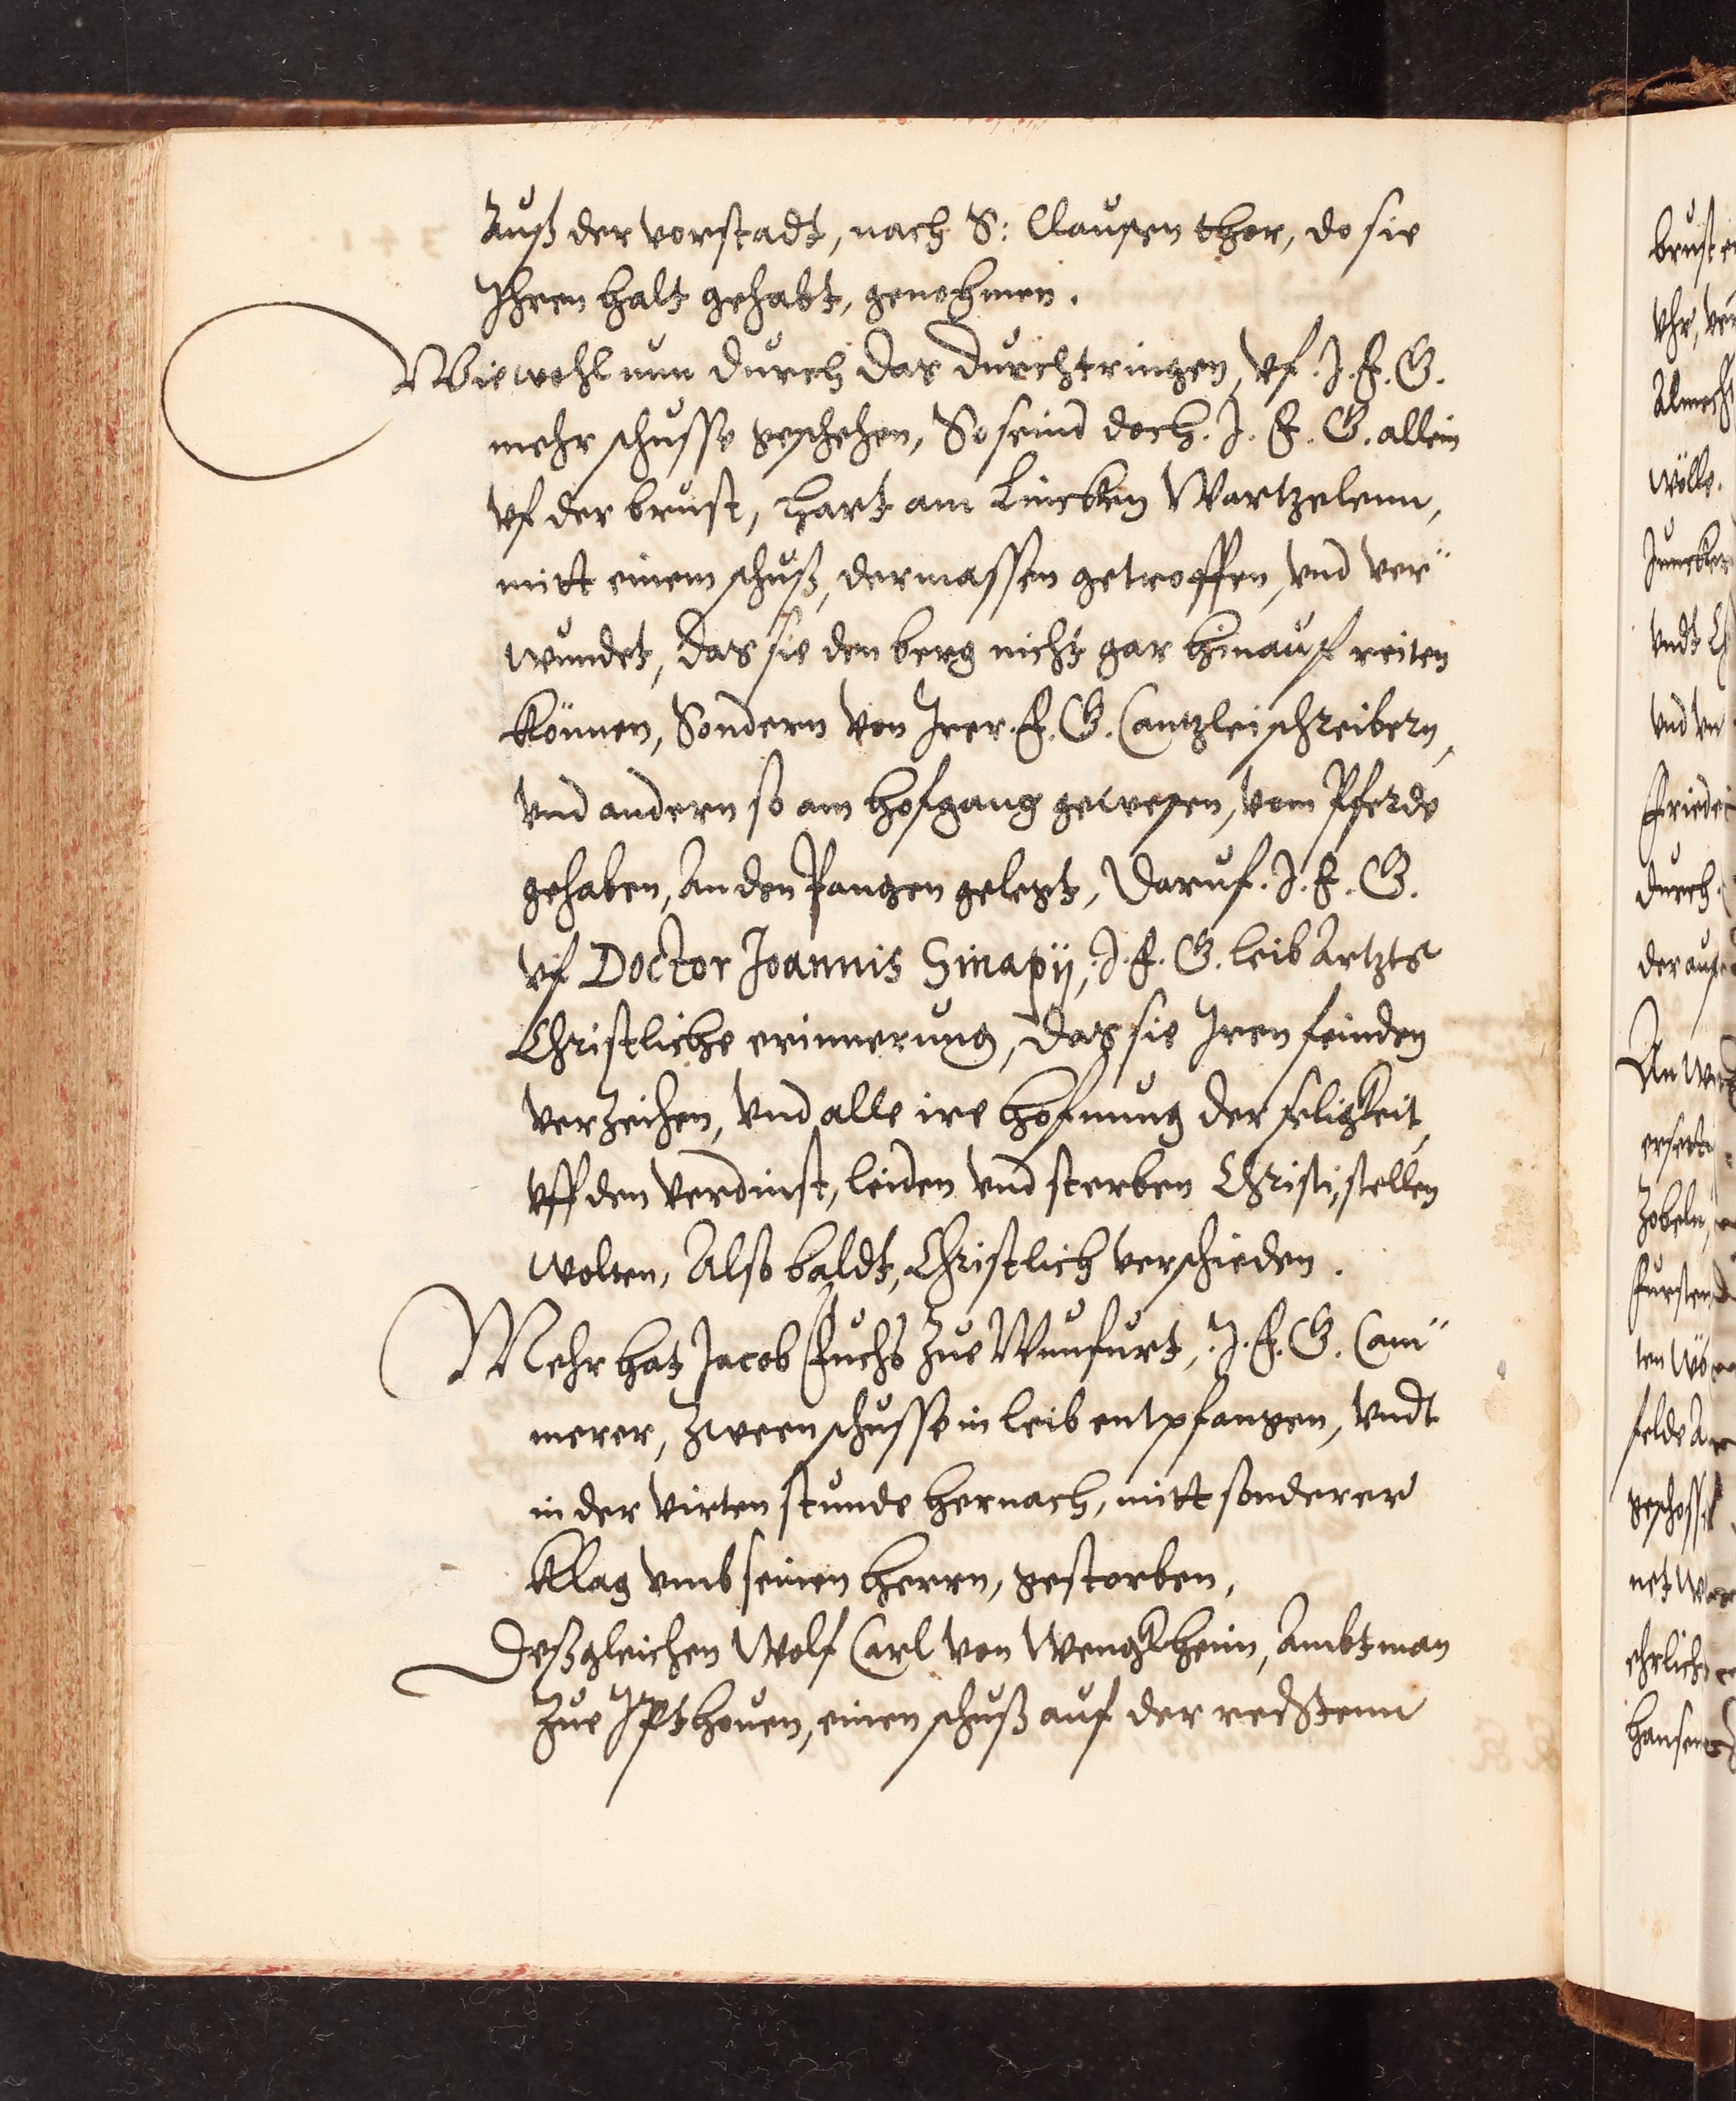 Auß der vorstadt, nach S: Clausen thor, do sie
Ihren halt gehabt, genohmen.
Wiewohl nun durch das durchtringen, vf. J. F. G.
mehr schusse geschehen, So seind doch. J. F. G. allein
vf der brust, hart am Lincken Wartzelenn,
mitt einem schuß, dermassen getroffen, vnd ver"
wundet, das sie den berg nicht gar hinauf reiten
können, Sondern von Irer. F. G. Cantzleischreibern,
vnd andern so am hofgang gewesen, vom Pferde
gehaben, An den Rangen gelegt, Daruf. J. F. G.
vf Doctor Joannis Sinapij, J. F. G. leib Artzts
Christliche erinnerung, das sie Iren feinden
verzeihen, vnd alle ire hofnung der seligkeit,
vff den verdinst, leiden vnd sterben Christi, stellen
wolten, Also baldt, Christlich verschieden.
Mehr hat Jacob Fuchs zue Wunfurt, J. F. G. Cam"
merer, zween schusse in leib entpfangen, vndt
in der virten stunde hernach, mitt sonderer
klag vmb seinen herrn, gestorben,
Deßgleichen Wolf Carl von Wengkheim, Ambtman
zue Ipthouen, einen schuß auf der rechtenn
brust
Vhr,
wölle.
vndt
durch
Zobeln,